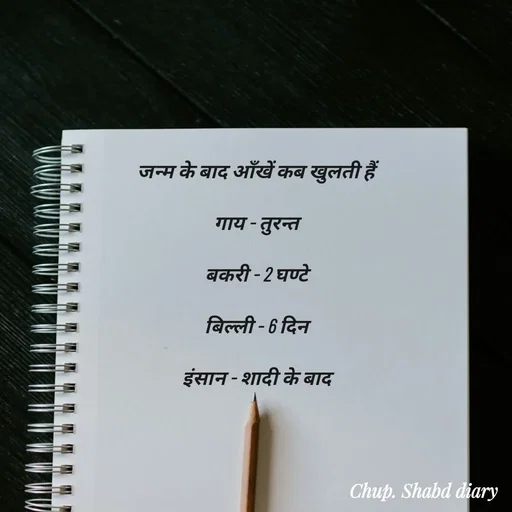 जन्म के बाद आँखें कब खुलती हैं
गाय - तुरन्त
बकरी - 2 घण्टे
बिल्ली - 6 दिन
इंसान - शादी के बाद
Chup. Shabd diary